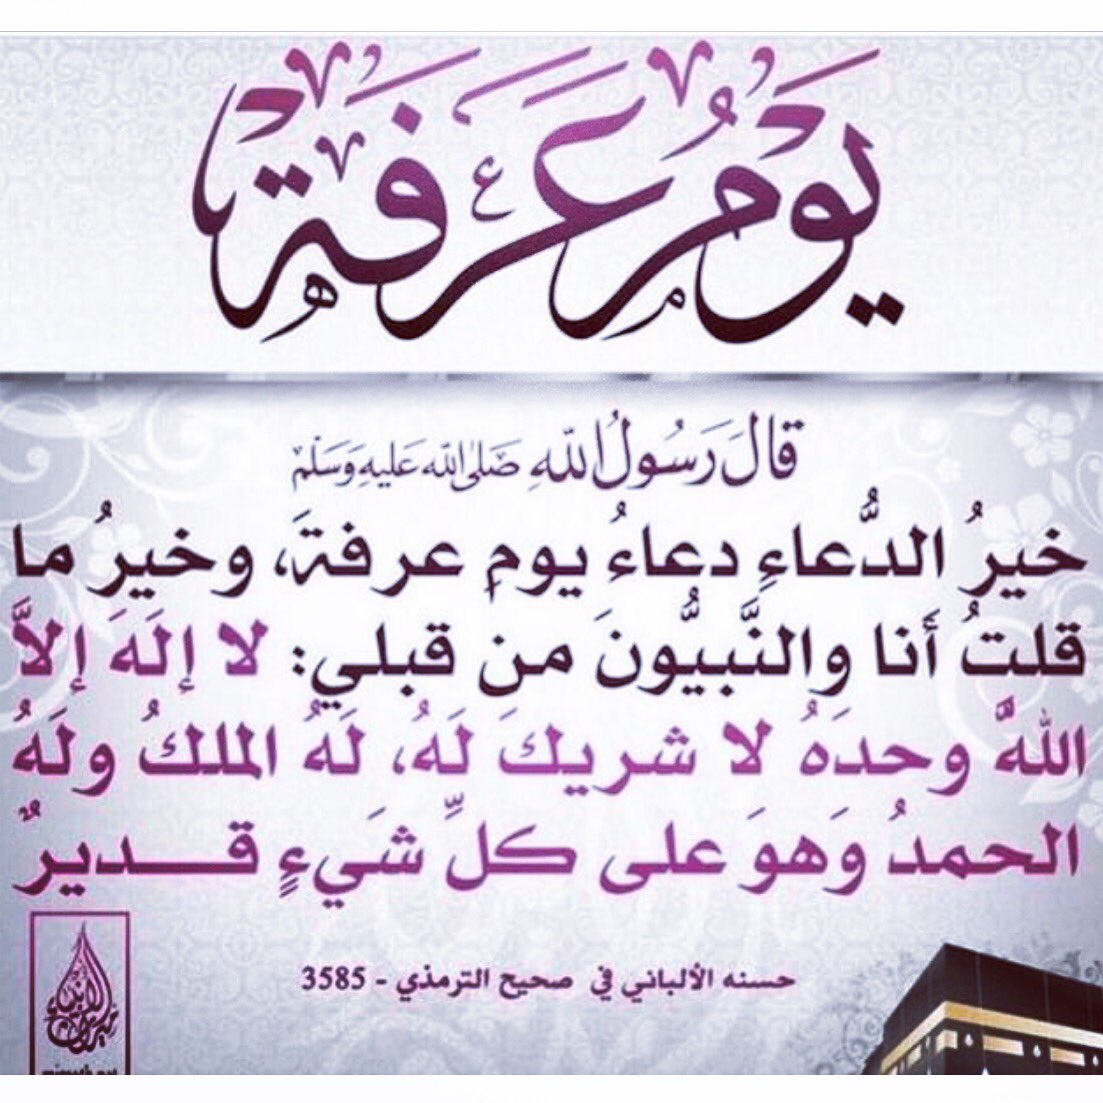 يَوْمُ عَرَفَة
قَالَ رَسُولُ اللهِ صَلَى اللهُ عَلَيهِ وَسَلَّم
خيرُ الدُّعاءِ دعاءُ يومِ عرفةَ، وخيرُ ما
قلتُ أَنا والنَّبيُّونَ من قبلي: لا إلَهَ إلاَّ
اللهُ وحدَهُ لا شريكَ لَهُ، لَهُ الملكُ ولَهُ
الحمدُ وَهوَ على كلِّ شَيءٍ قـــديرٌ
حسنه الألباني في صحيح الترمذي - 3585